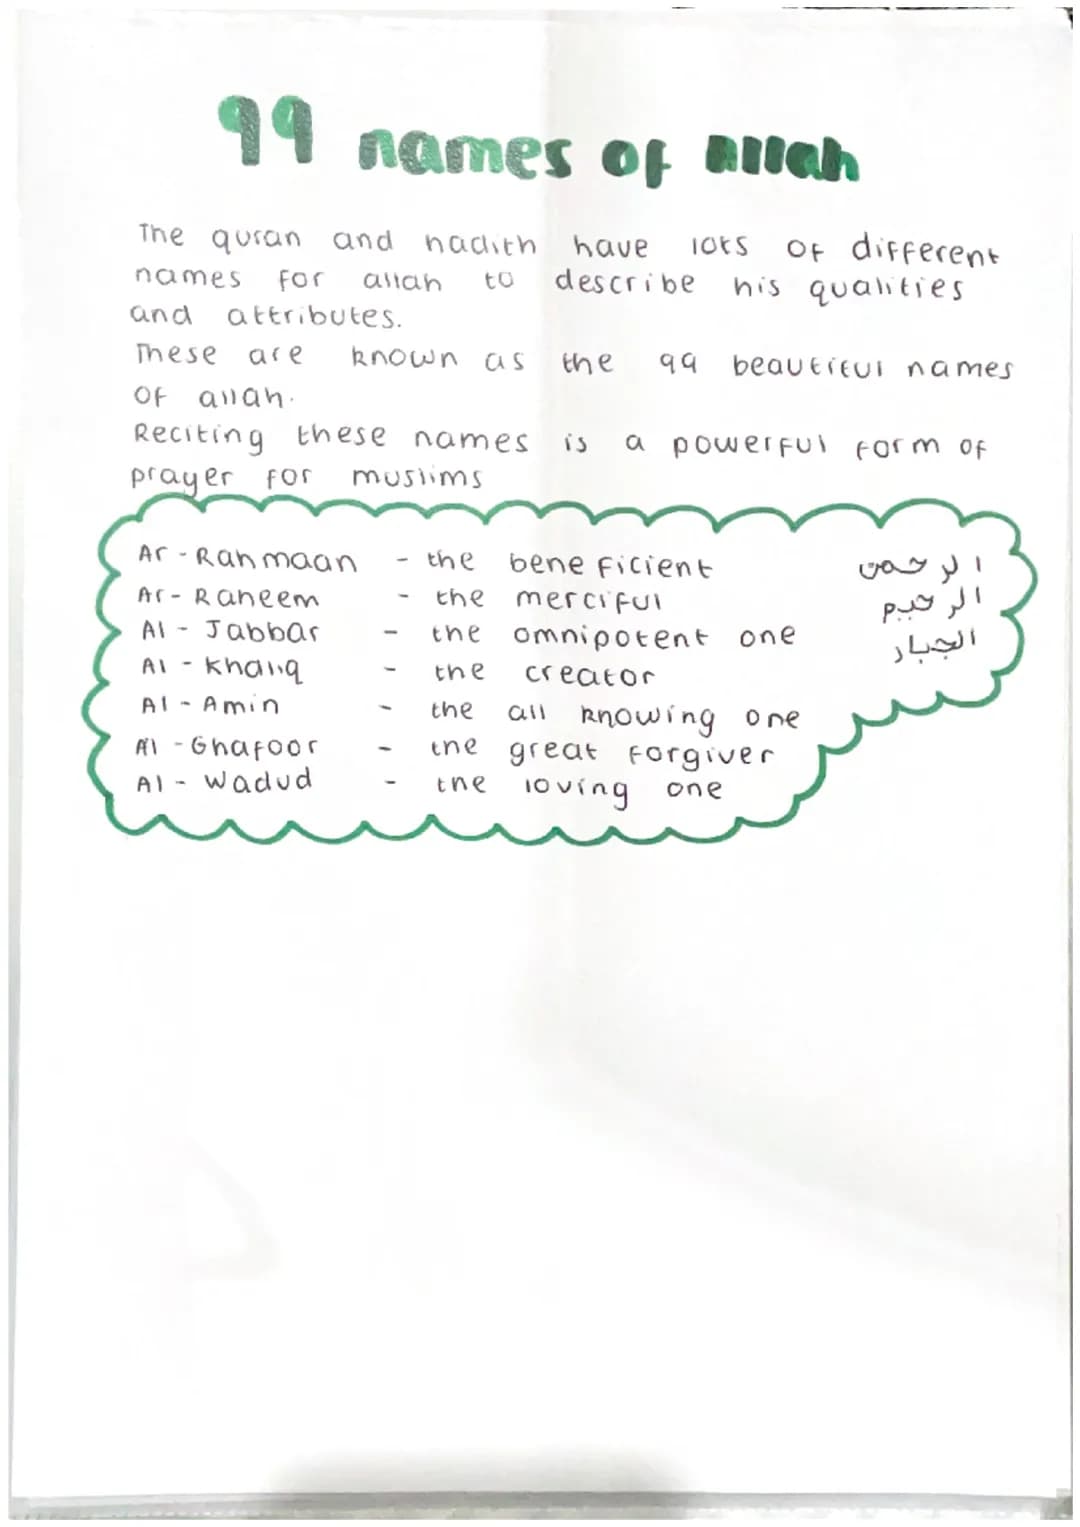 99 names of Allah
The quran and hadith have lots of different
names for allah to describe his qualities
and attributes.
These are known as the 99 beautiful names
of allah.
Reciting these names is a powerful form of
prayer for muslims
Ar - Rahmaan - the beneficient الرحمن
Ar - Raheem - the merciful الرحيم
Al - Jabbar - the omnipotent one الجبار
Al - Khaliq - the creator
Al - Amin - the all knowing one
Al - Ghafoor - the great forgiver
Al - Wadud - the loving one